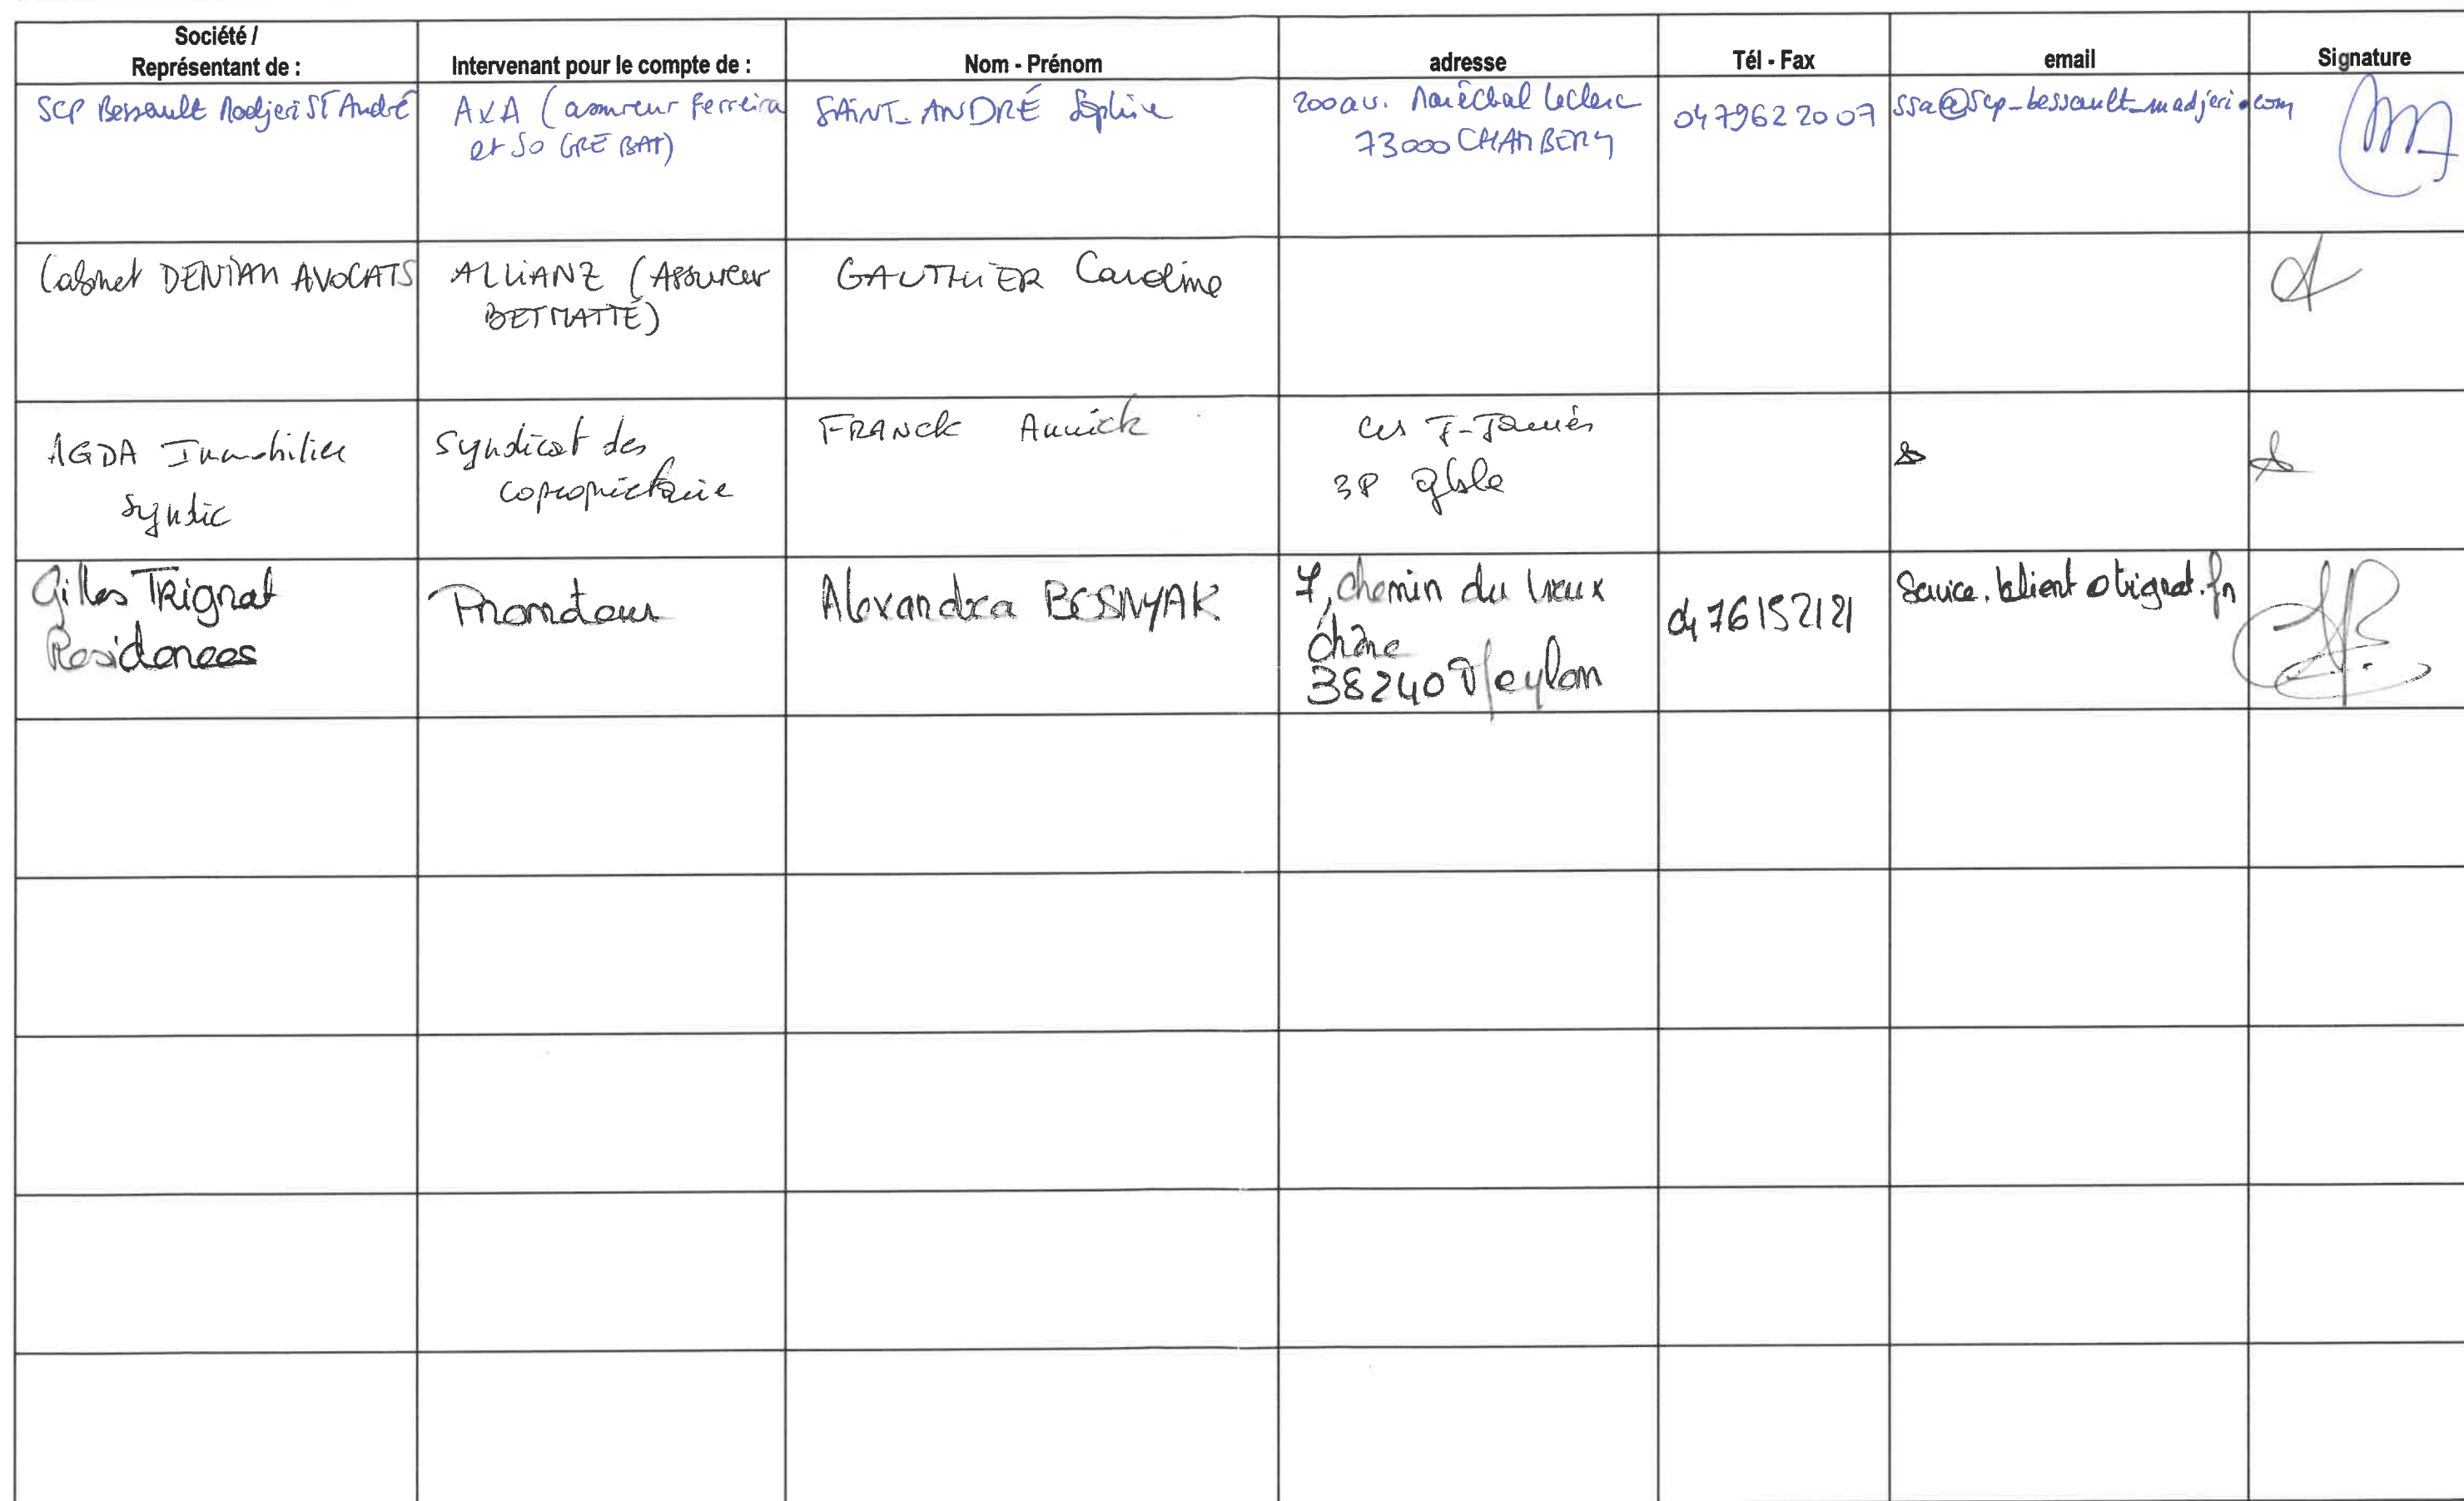 Société /
Représentant de :
Intervenant pour le compte de :
Nom - Prénom
adresse
Tél - Fax
email
Signature
SCP Bessault Madjeri ST André
AXA (assureur Ferreira
et SO GRE BAT)
SAINT-ANDRÉ Sophie
200 av. Maréchal Leclerc
73000 CHAMBERY
0479622007
ssa@scp-bessault-madjeri.com
Cabinet DENIAN AVOCATS
ALLIANZ (Assureur
BET MATTÉ)
GAUTHIER Caroline
AGDA Immobilier
Syndic
Syndicat des
copropriétaire
FRANCK Annick
38 gble
Gilles TRignat
Residences
Promoteur
Alexandra BESNYAK
7, chemin du vieux
chêne
38240 Meylan
0476152121